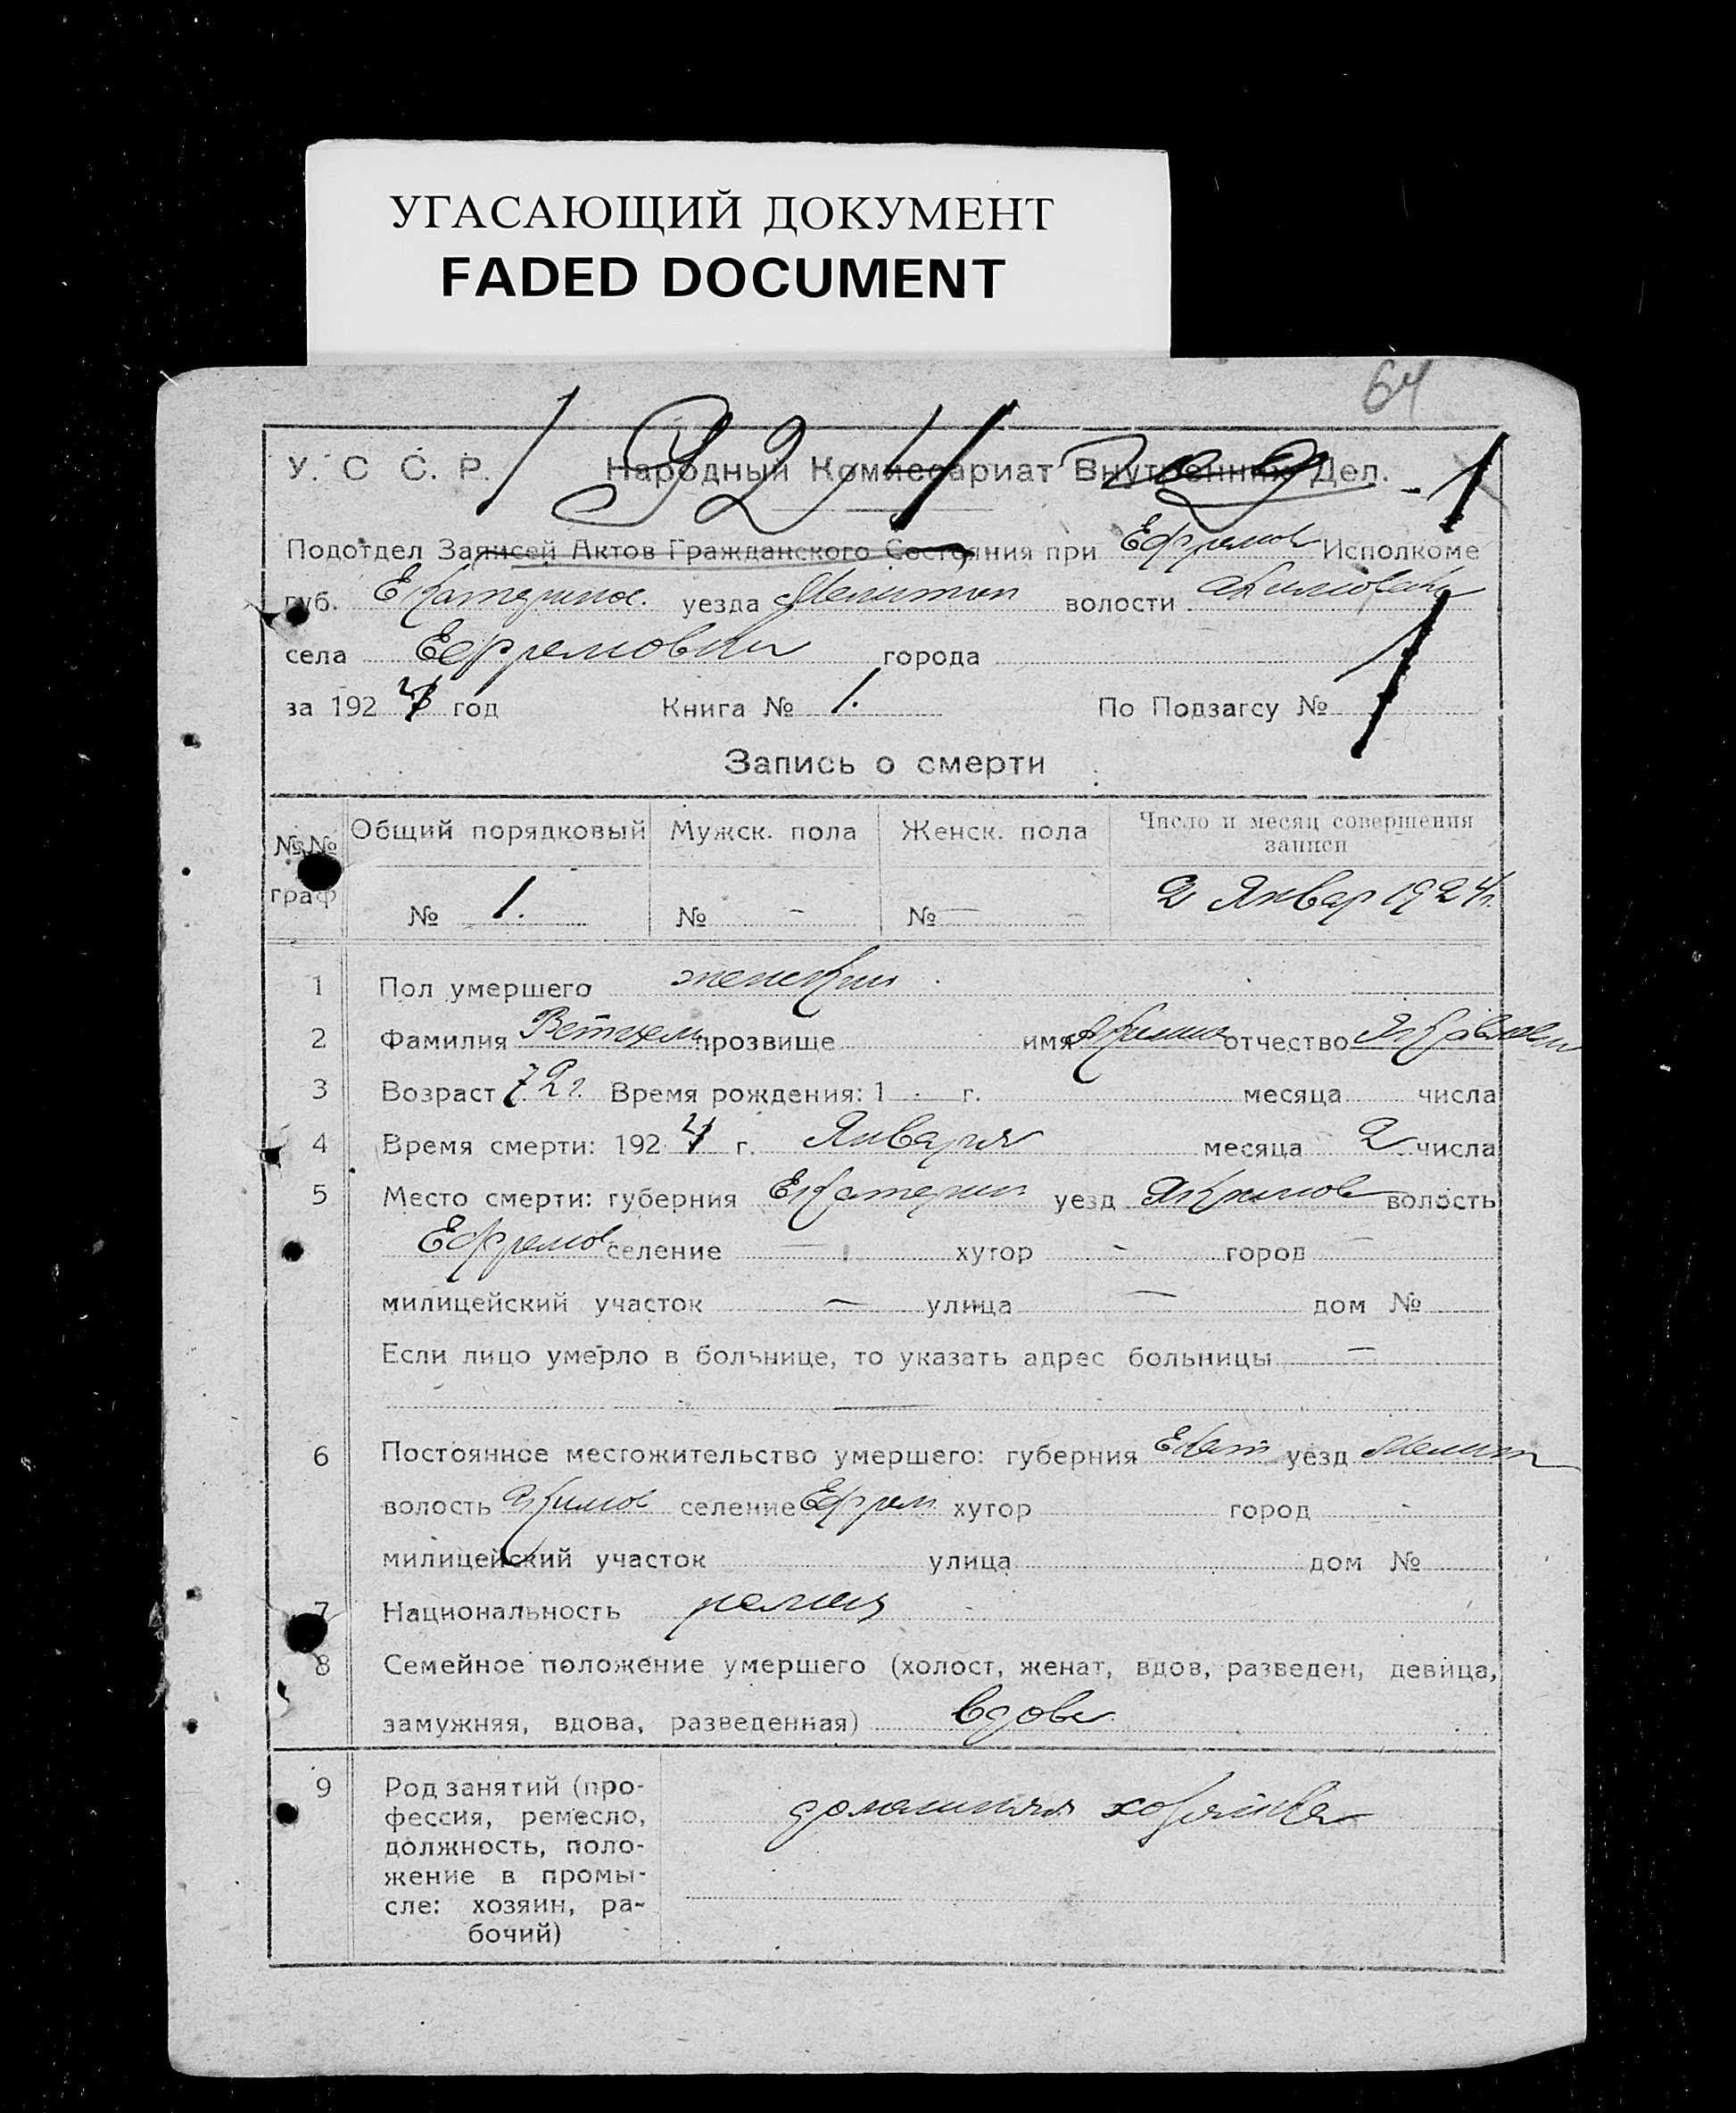 УГАСАЮЩИЙ ДОКУМЕНТ
FADED DOCUMENT
64
1924 год -1
У. С С. Р. Народный Комиссариат Внутренних Дел.
Подотдел Записей Актов Гражданского Состояния при Ефремов Исполкоме
губ. Екатеринос. уезда Мелитоп волости
села Ефремовки города
за 1924 год Книга № 1. По Подзагсу № 1
Запись о смерти
№№ граф Общий порядковый Мужск. пола Женск. пола Число и месяц совершения записи
№ 1. № - № - 2 Январ 1924 г.
1 Пол умершего женский
2 Фамилия прозвище имя отчество
3 Возраст 72 г. Время рождения: 1 г. месяца числа
4 Время смерти: 1924 г. Января месяца 2 числа
5 Место смерти: губерния Екатерин уезд Акимов волость
Ефремов селение — хутор - город —
милицейский участок — улица — дом №
Если лицо умерло в больнице, то указать адрес больницы —
—
6 Постоянное местожительство умершего: губерния Екат уезд Мелит
волость Акимов селение Ефрем хутор город -
милицейский участок улица дом №
7 Национальность
8 Семейное положение умершего (холост, женат, вдов, разведен, девица,
замужняя, вдова, разведенная) вдова
9 Род занятий (про-
фессия, ремесло,
должность, поло-
жение в промы-
сле: хозяин, ра-
бочий)
домашняя хозяйка